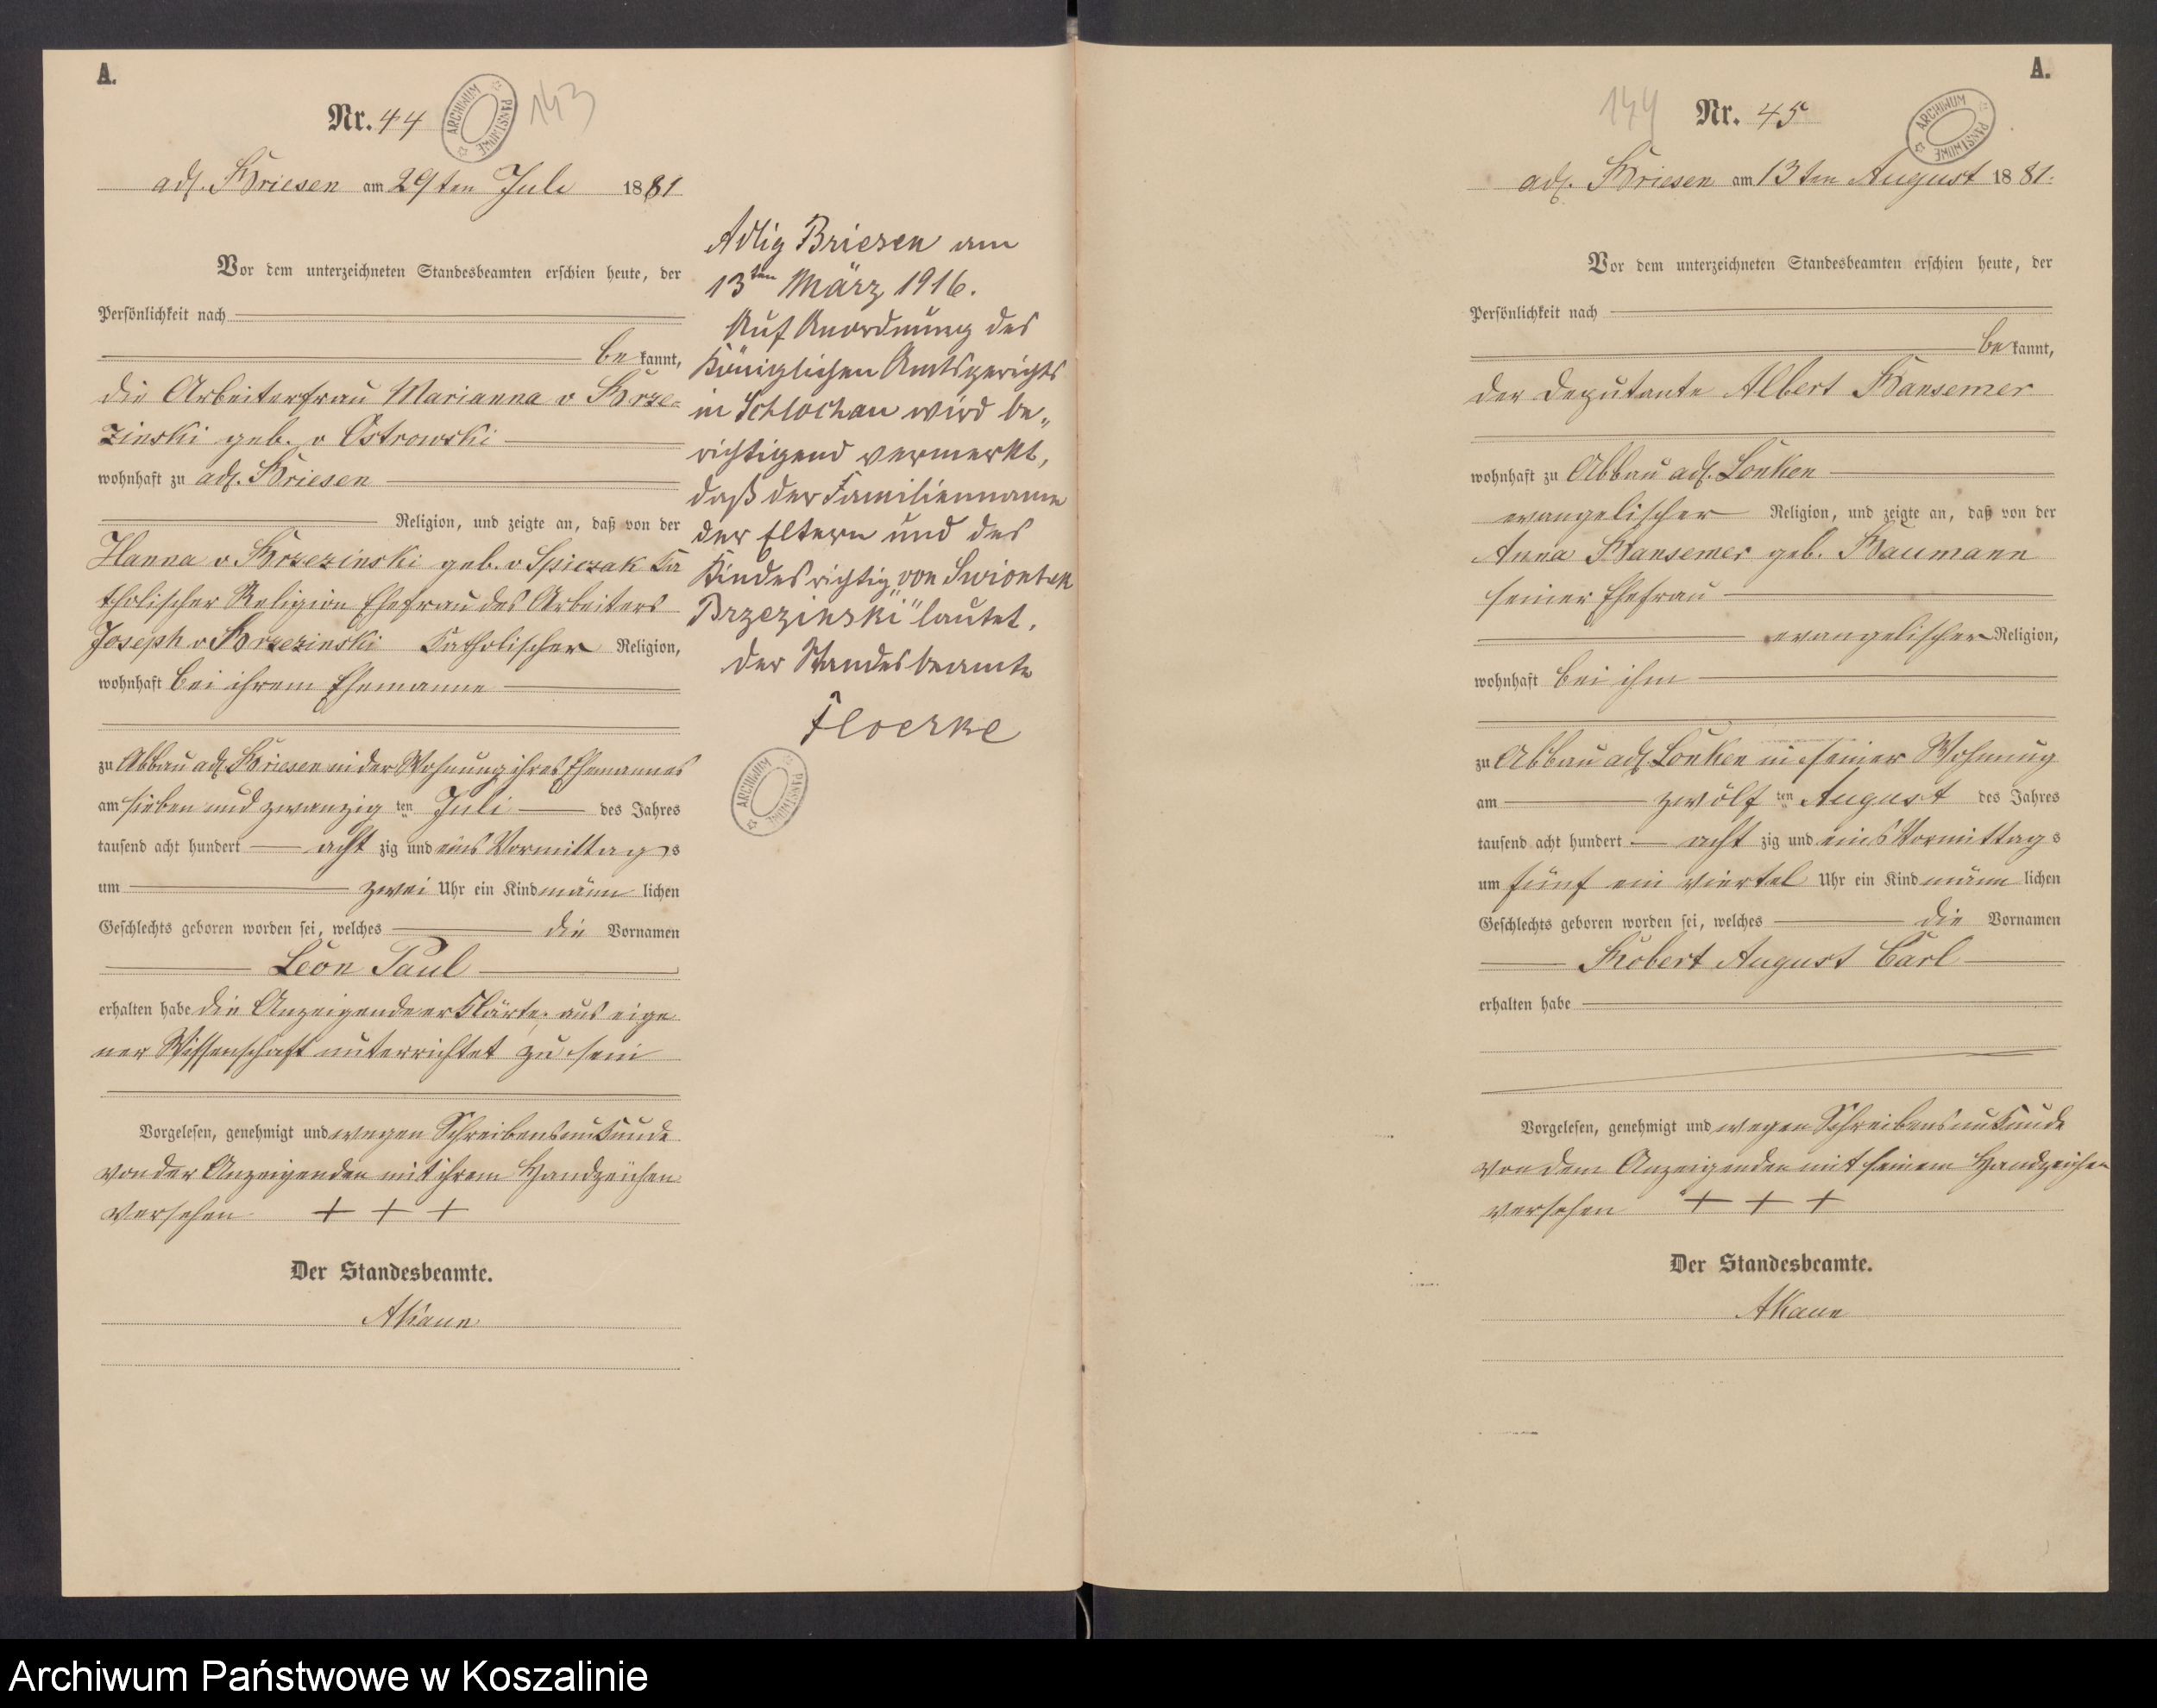 A.
Nr. 44
143
ARCHIWUM PAŃSTWOWE
adl. Briesen am 29ten Juli 1881
Vor dem unterzeichneten Standesbeamten erschien heute, der
Persönlichkeit nach
bekannt,
die Arbeiterfrau Marianna v Brze-
zinski geb. v Ostrowski
wohnhaft zu adl. Briesen
Religion, und zeigte an, daß von der
Hanna v Brzezinski geb. v Spiczak ka
tholischer Religion Ehefrau des Arbeiters
Joseph v Brzezinski katholischer Religion,
wohnhaft bei ihrem Ehemanne
zu Abbau adl. Briesen in der Wohnung ihres Ehemannes
am sieben und zwanzig ten Juli des Jahres
tausend acht hundert acht zig und eins Vormittags
um zwei Uhr ein Kind männ lichen
Geschlechts geboren worden sei, welches die Vornamen
Leon Paul
erhalten habe die Anzeigende erklärte, aus eige
ner Wissenschaft unterrichtet zu sein
Vorgelesen, genehmigt und wegen Schreibensunkunde
von der Anzeigenden mit ihrem Handzeichen
versehen + + +
Der Standesbeamte.
AKaun
Adlig Briesen am
13ten März 1916.
Auf Anordnung des
Königlichen Amtsgerichts
in Schlochau wird be„
richtigend vermerkt,
daß der Familienname
der Eltern und des
Kindes richtig „von Swiontek
Brzezinski" lautet.
Der Standesbeamte
Floerke
ARCHIWUM PAŃSTWOWE
A.
144
Nr. 45
ARCHIWUM PAŃSTWOWE
adl. Briesen am 13ten August 1881.
Vor dem unterzeichneten Standesbeamten erschien heute, der
Persönlichkeit nach
bekannt,
der Deputante Albert Bansemer
wohnhaft zu Abbau adl. Lonken
evangelischer Religion, und zeigte an, daß von der
Anna Bansemer geb. Baumann
seiner Ehefrau
evangelischer Religion,
wohnhaft bei ihm
zu Abbau adl. Lonken in seiner Wohnung
am zwölf ten August des Jahres
tausend acht hundert acht zig und eins Vormittags
um fünf ein viertel Uhr ein Kind männ lichen
Geschlechts geboren worden sei, welches die Vornamen
Robert August Carl
erhalten habe
Vorgelesen, genehmigt und wegen Schreibensunkunde
von dem Anzeigenden mit seinem Handzeichen
versehen + + +
Der Standesbeamte.
AKaun
Archiwum Państwowe w Koszalinie